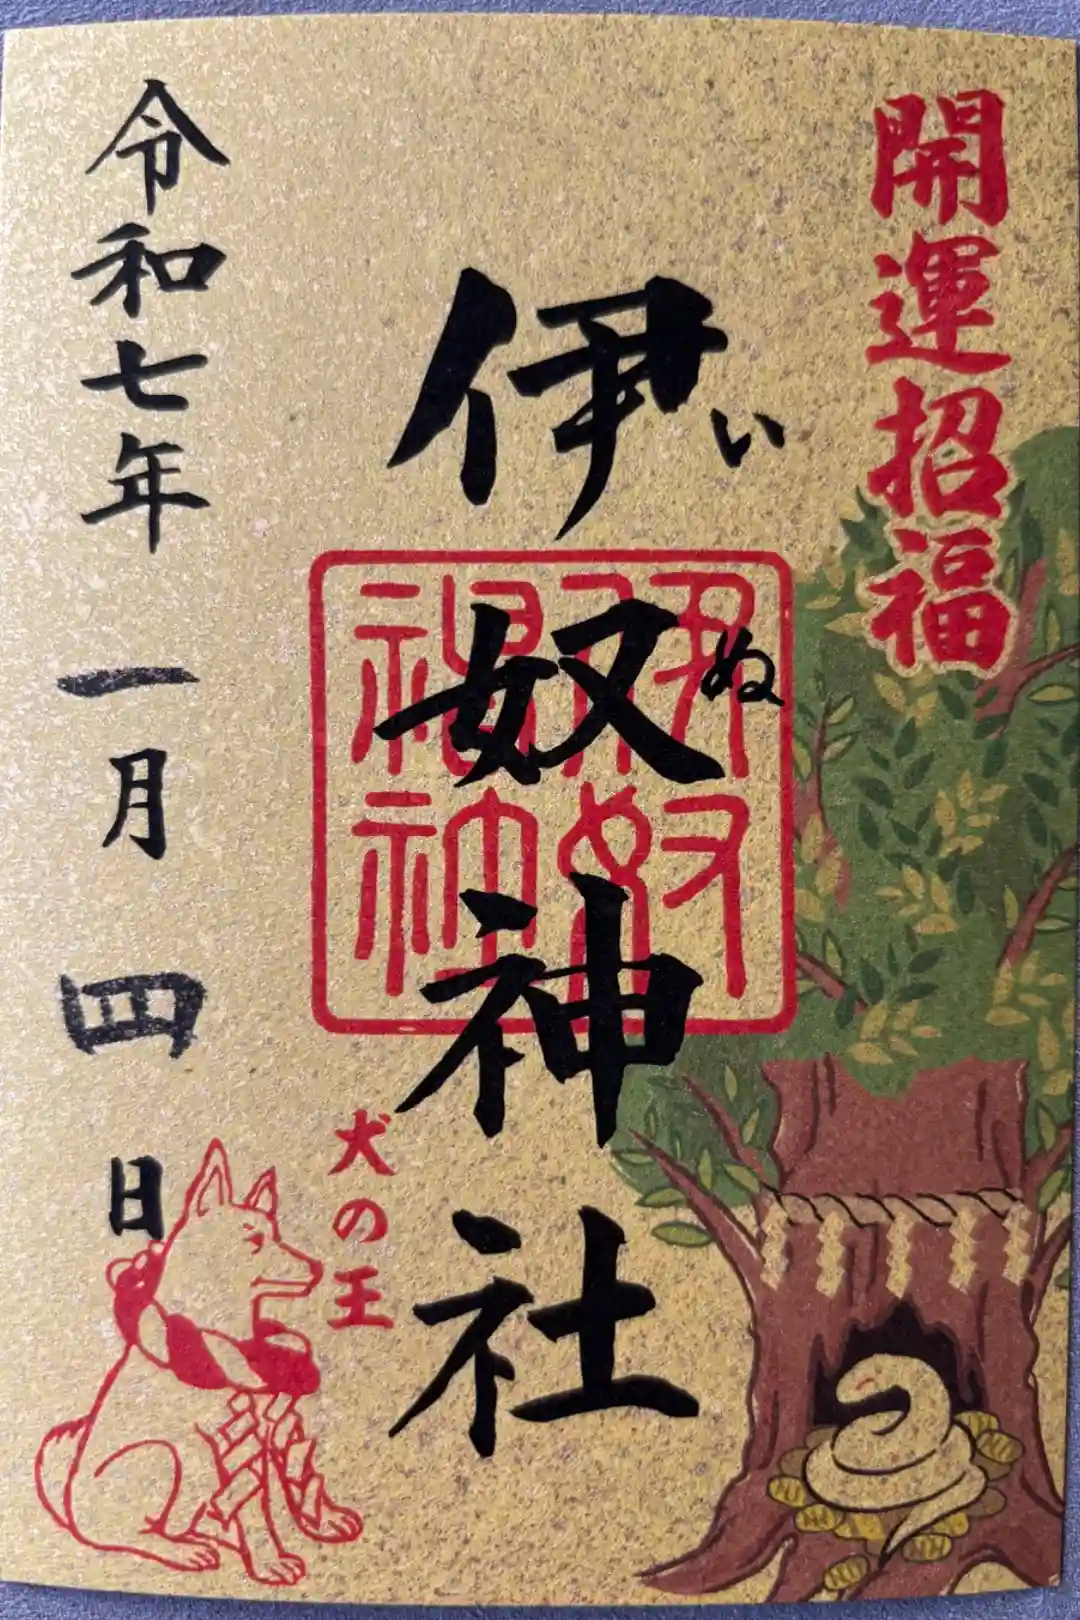 開運招福
伊奴神社
いぬ
伊奴
神社
犬の王
令和七年一月四日